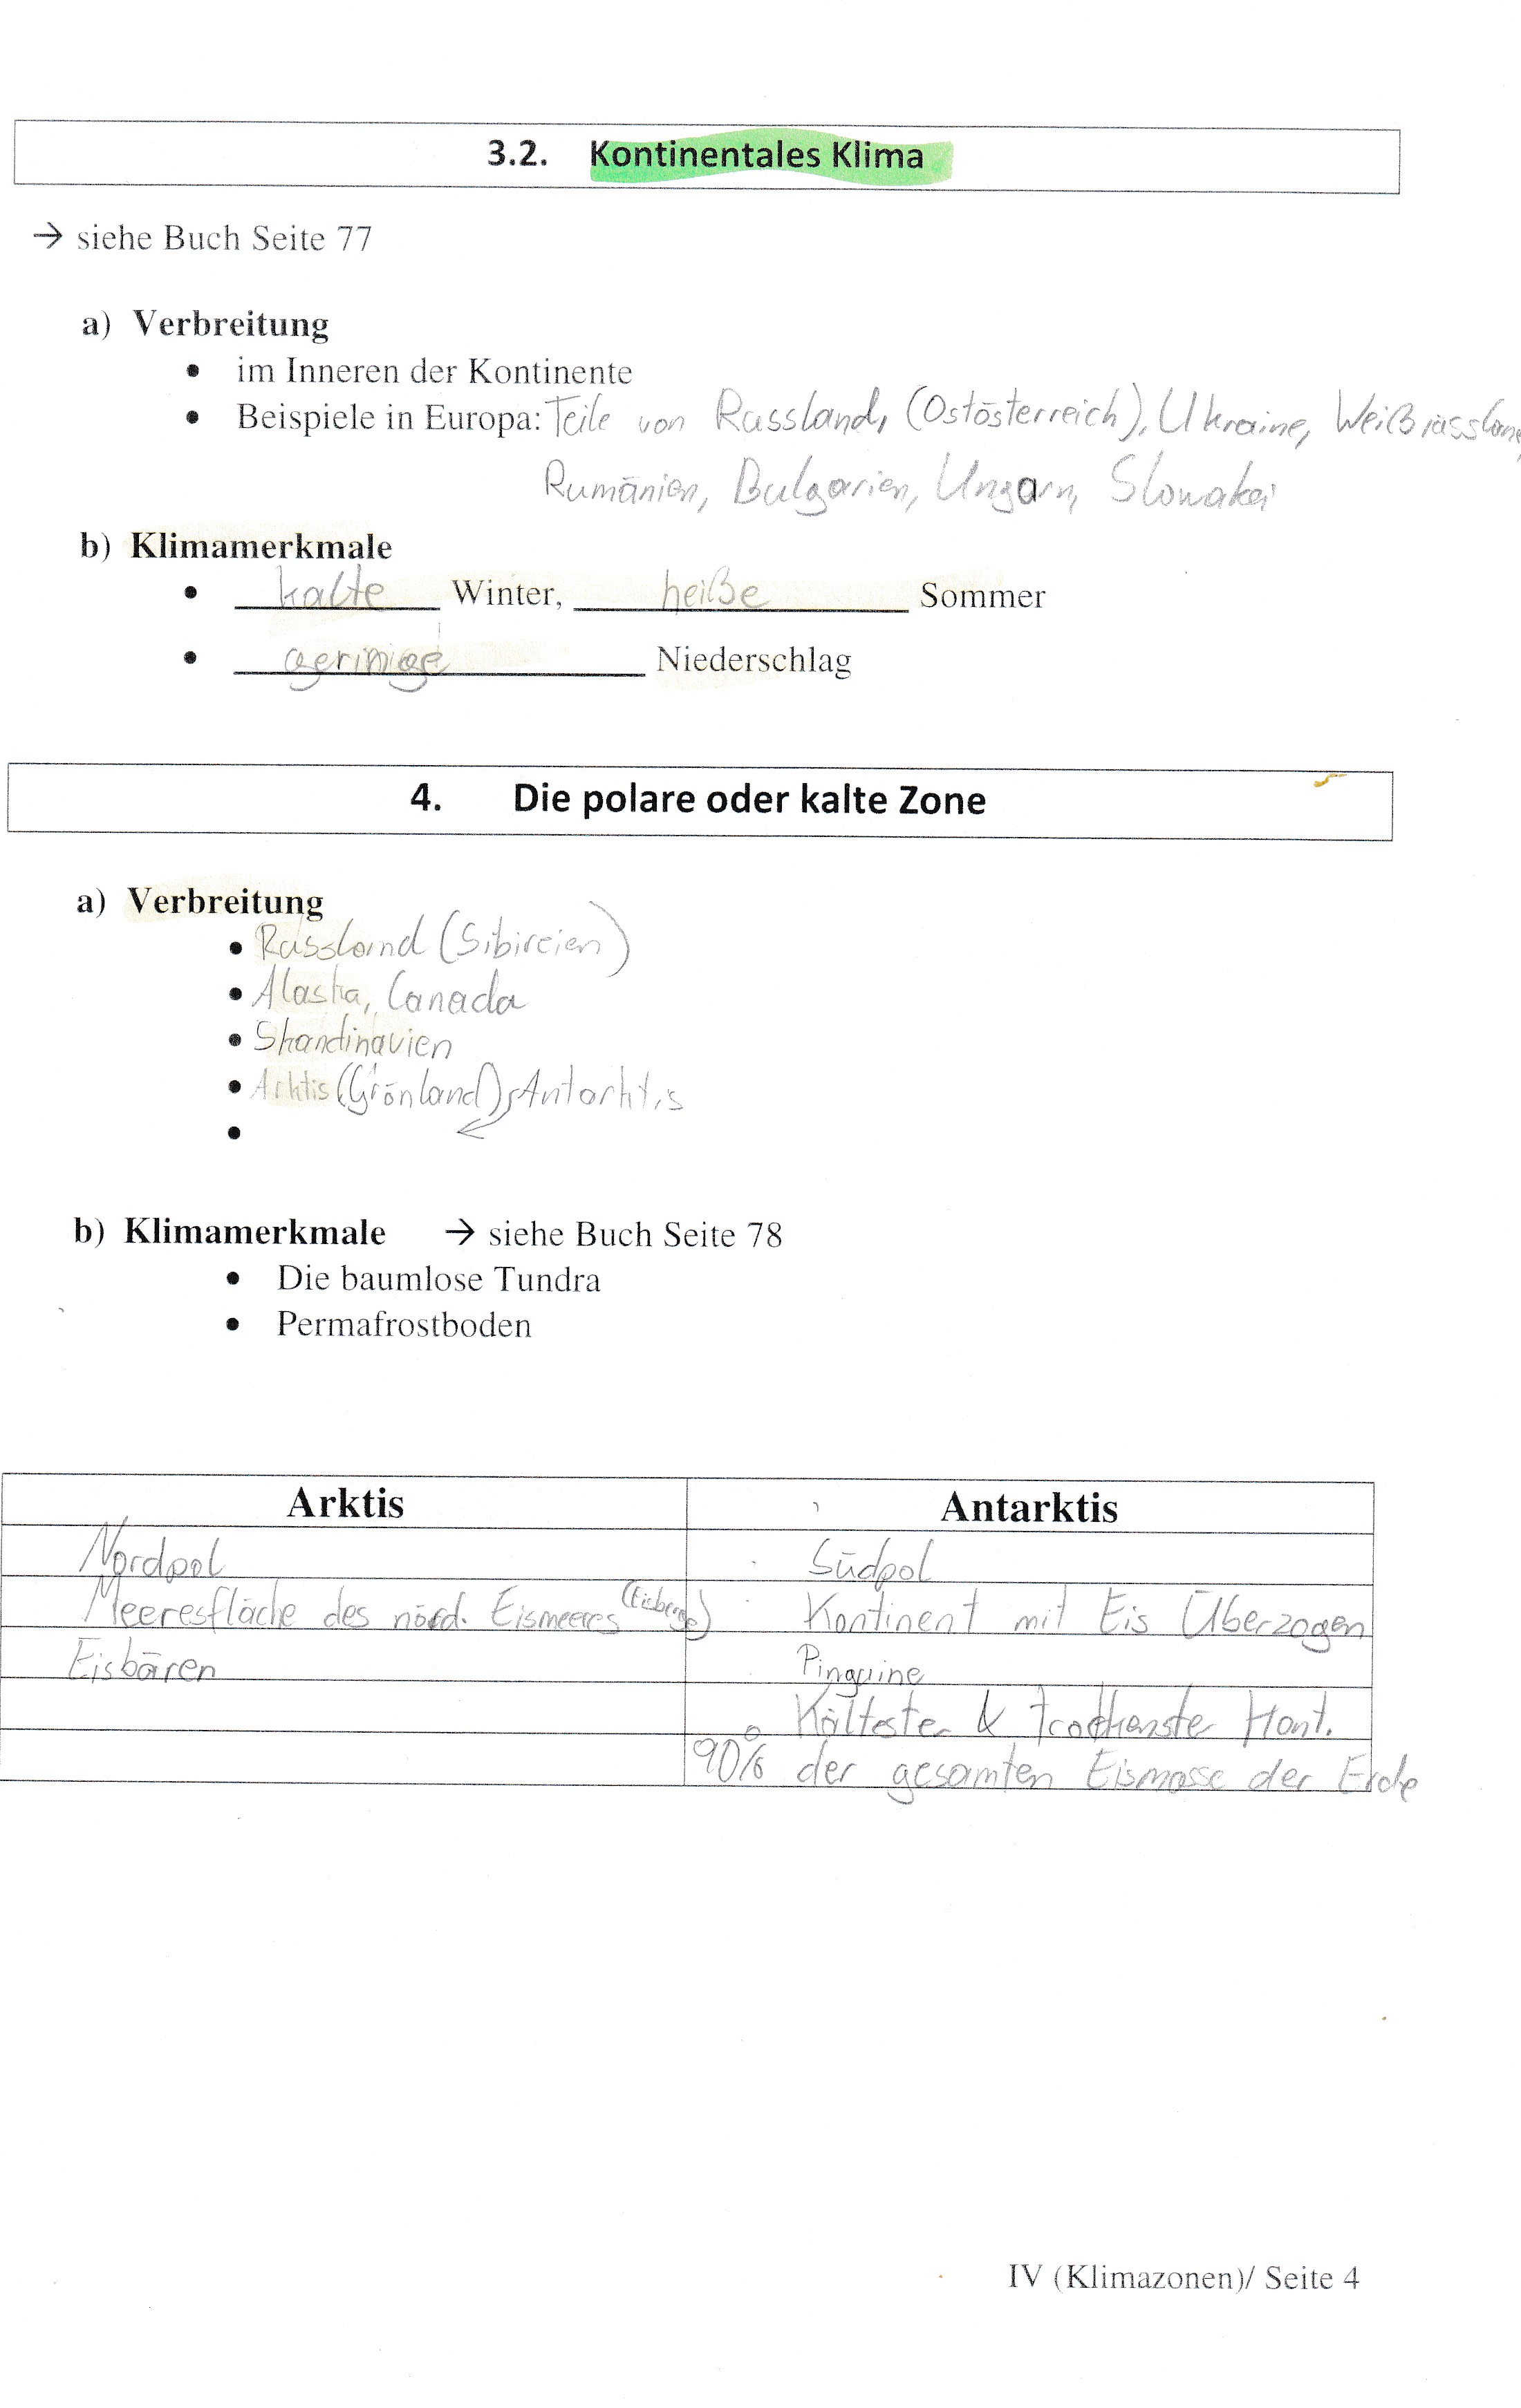 3.2. Kontinentales Klima
→ siehe Buch Seite 77
a) Verbreitung
• im Inneren der Kontinente
• Beispiele in Europa: Teile von Russland, (Ostösterreich), Ukraine, Weißrussland,
Rumänien, Bulgarien, Ungarn, Slowakei
b) Klimamerkmale
• kalte Winter, heiße Sommer
• geringe Niederschlag
4. Die polare oder kalte Zone
a) Verbreitung
• Russland (Sibireien)
• Alaska, Canada
• Skandinavien
• Arktis (Grönland), Antarktis
•
b) Klimamerkmale → siehe Buch Seite 78
• Die baumlose Tundra
• Permafrostboden
Arktis Antarktis
Nordpol Südpol
Meeresfläche des nörd. Eismeeres (Eisberge) Kontinent mit Eis Überzogen
Eisbären Pinguine
Kältester & trockenster Kont.
90% der gesamten Eismasse der Erde
IV (Klimazonen)/ Seite 4